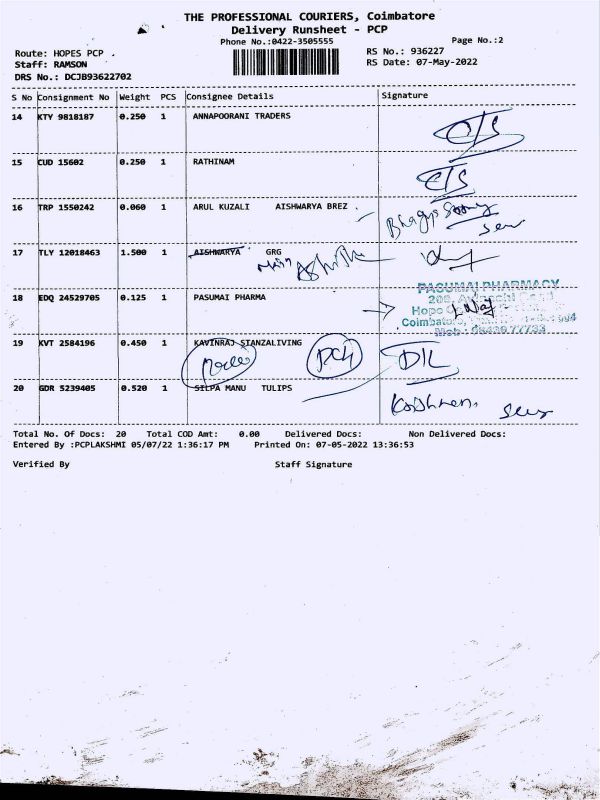 THE PROFESSIONAL COURIERS, Coimbatore
Delivery Runsheet - PCP
Phone No.:0422-3505555
Page No.:2
Route: HOPES PCP .
RS No.: 936227
Staff: RAMSON
RS Date: 07-May-2022
DRS No.: DCJB93622702
S No Consignment No Weight PCS Consignee Details Signature
14 KTY 9818187 0.250 1 ANNAPOORANI TRADERS
15 CUD 15602 0.250 1 RATHINAM
16 TRP 1550242 0.060 1 ARUL KUZALI AISHWARYA BREZ
17 TLY 12018463 1.500 1 AISHWARYA GRG
PASUMAI PHARMACY
18 EDQ 24529705 0.125 1 PASUMAI PHARMA
19 KVT 2584196 0.450 1 KAVINRAJ STANZALIVING
PCH DIL
20 GDR 5239405 0.520 1 SILPA MANU TULIPS
Total No. Of Docs: 20 Total COD Amt: 0.00 Delivered Docs: Non Delivered Docs:
Entered By :PCPLAKSHMI 05/07/22 1:36:17 PM Printed On: 07-05-2022 13:36:53
Verified By Staff Signature